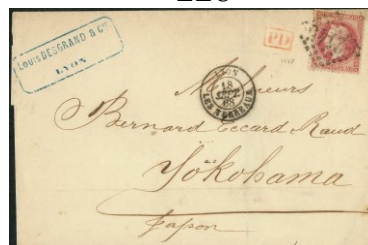 Louis DESGRAND & Cie
LYON
PD
LYON
18
68
LES TERREAUX
Messieurs
Bernard Eccard Raud
Yokohama
Japon